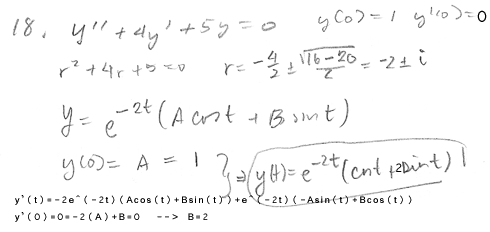 18. y'' + 4y' + 5y = 0 y(0) = 1 y'(0) = 0
r² + 4r + 5 = 0 r = -4/2 ± √(16-20)/2 = -2 ± i
y = e^-2t (A cos t + B sin t)
y(0) = A = 1 } ⇒ y(t) = e^-2t (cos t + 2 sin t)
y'(t)=-2e^(-2t)(Acos(t)+Bsin(t))+e^(-2t)(-Asin(t)+Bcos(t))
y'(0)=0=-2(A)+B=0 --> B=2